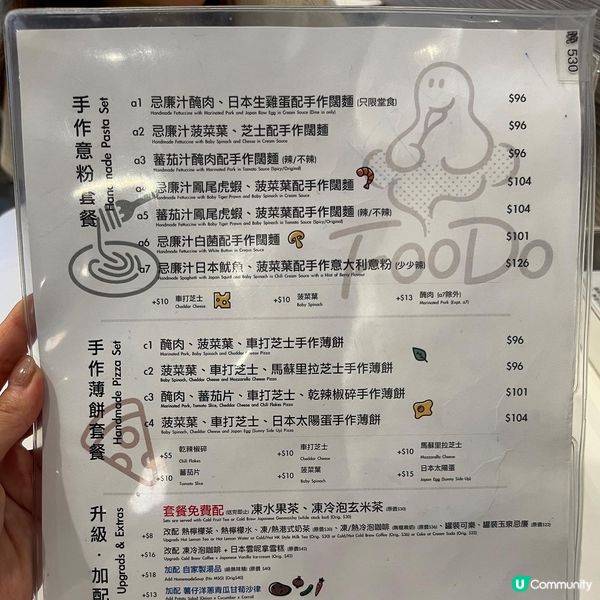 晚 530
手作意粉套餐
Handmade Pasta Set
a1 忌廉汁醃肉、日本生雞蛋配手作闊麵 (只限堂食) $96
Handmade Fettuccine with Marinated Pork and Japan Raw Egg in Cream Sauce (Dine in only)
a2 忌廉汁菠菜葉、芝士配手作闊麵 $96
Handmade Fettuccine with Baby Spinach and Cheese in Cream Sauce
a3 蕃茄汁醃肉配手作闊麵 (辣/不辣) $96
Handmade Fettuccine with Marinated Pork in Tomato Sauce (Spicy/Original)
a4 忌廉汁鳳尾虎蝦、菠菜葉配手作闊麵 $104
Handmade Fettuccine with Baby Tiger Prawn and Baby Spinach in Cream Sauce
a5 蕃茄汁鳳尾虎蝦、菠菜葉配手作闊麵 (辣/不辣) $104
Handmade Fettuccine with Baby Tiger Prawn and Baby Spinach in Tomato Sauce (Spicy/Original)
a6 忌廉汁白菌配手作闊麵 $101
Handmade Fettuccine with White Button in Cream Sauce
a7 忌廉汁日本魷魚、菠菜葉配手作意大利意粉 (少少辣) $126
Handmade Spaghetti with Japan Squid and Baby Spinach in Chili Cream Sauce with a Hint of Berry Flavour
FooDo
+$10 車打芝士 +$10 菠菜葉 +$13 醃肉 (a7除外)
Cheddar Cheese Baby Spinach Marinated Pork (Expt. a7)
手作薄餅套餐
Handmade Pizza Set
c1 醃肉、菠菜葉、車打芝士手作薄餅 $96
Marinated Pork, Baby Spinach and Cheddar Cheese Pizza
c2 菠菜葉、車打芝士、馬蘇里拉芝士手作薄餅 $96
Baby Spinach, Cheddar Cheese and Mozzarella Cheese Pizza
c3 醃肉、蕃茄片、車打芝士、乾辣椒碎手作薄餅 $101
Marinated Pork, Tomato Slice, Cheddar Cheese and Chili Flakes Pizza
c4 菠菜葉、車打芝士、日本太陽蛋手作薄餅 $104
Baby Spinach, Cheddar Cheese and Japan Egg (Sunny Side Up) Pizza
+$5 乾辣椒碎 +$10 車打芝士 +$10 馬蘇里拉芝士
Chili Flakes Cheddar Cheese Mozzarella Cheese
+$10 蕃茄片 +$10 菠菜葉 +$15 日本太陽蛋
Tomato Slice Baby Spinach Japan Egg (Sunny Side Up)
升級·加配
Upgrads & Extras
套餐免費配 (送完即止) 凍水果茶、凍冷泡玄米茶 (原價$30)
Sets are served with Cold Fruit Tea or Cold Brew Japanese Genmaicha (while stock last) (Orig. $30)
+$8 改配 熱檸檬茶、熱檸檬水、凍/熱港式奶茶
+$16 改配 凍冷泡咖啡、日本雲呢拿雪糕
Upgrade Cold Brew Coffee + Japanese Vanilla Ice-cream
+$18 加配 自家製湯品
Add HomemadeSoup (No MSG) (Orig$40)
+$13 加配 薯仔洋蔥青瓜甘荀沙律
Add Potato Salad (Onion + Cucumber + Carrot)
U Community